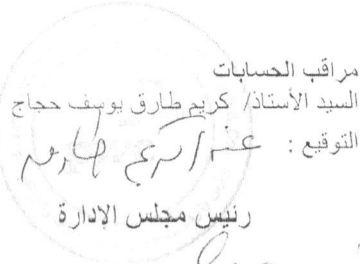 مراقب الحسابات
السيد الأستاذ/ كريم طارق يوسف حجاج
التوقيع : عنه / كريم طارق
رئيس مجلس الإدارة